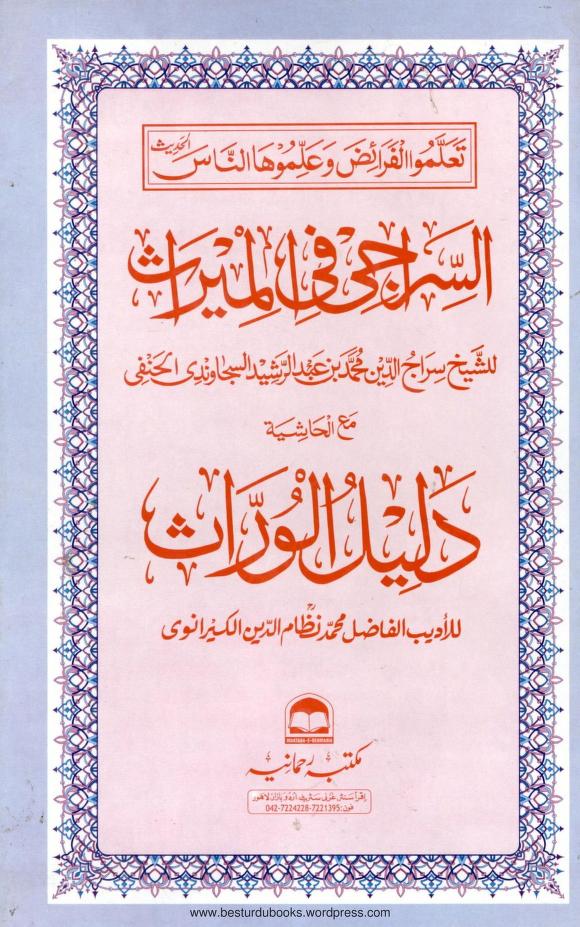 تَعَلَّمُوا الْفَرَائِضَ وَعَلِّمُوْهَا النَّاسَ الحدیث
السِّرَاجِیْ فِی الْمِیْرَاثِ
للشَّیخ سِرَاجُ الدِّین مُحَمَّد بن عَبْد الرَّشِیْد السجاوندی الحَنَفی
مَعَ الْحَاشِیَة
دَلِیْلُ الْوُرَّاثِ
للأدیب الفاضل محمد نظام الدین الکیرانوی
MAKTABA-E-REHMANIA
مکتبہ رحمانیہ
اِقرأ سنٹر غزنی سٹریٹ اردو بازار لاہور
فون: 042-7224228-7221395
www.besturdubooks.wordpress.com